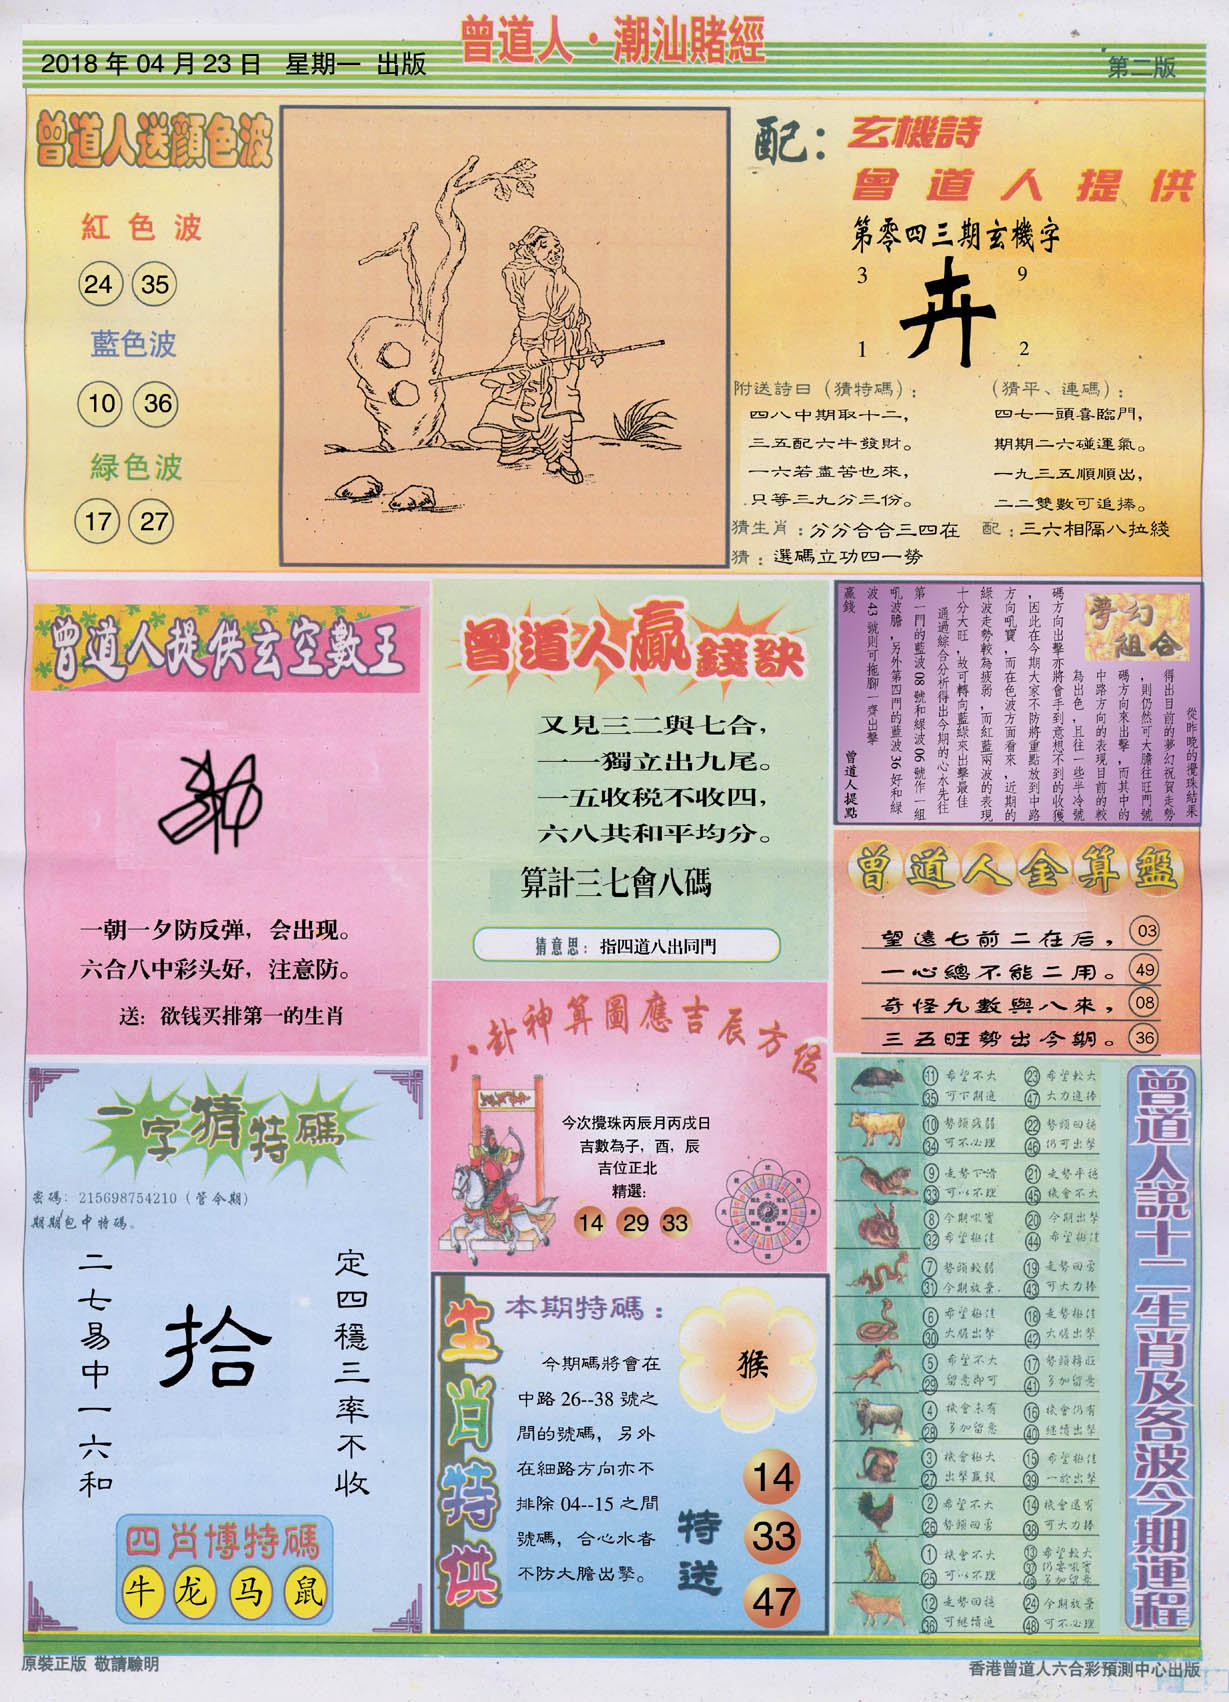 曾道人·潮汕賭經
2018 年 04 月 23 日 星期一 出版
第二版
曾道人送顔色波
紅色波
24 35
藍色波
10 36
緑色波
17 27
配：玄機詩
曾道人提供
第零四三期玄機字
3 9
卉
1 2
附送詩曰（猜特碼）：
四八中期取十二，
三五配六牛發財。
一六若盡苦也來，
只等三九分三份。
（猜平、連碼）：
四七一頭喜臨門，
期期二六碰運氣。
一九三五順順出，
二二雙數可追捧。
猜生肖：分分合合三四在
配：三六相隔八拉綫
猜：選碼立功四一勞
曾道人提供玄空數王
一朝一夕防反弹，会出现。
六合八中彩头好，注意防。
送：欲钱买排第一的生肖
曾道人贏錢訣
又見三二與七合，
一一獨立出九尾。
一五收税不收四，
六八共和平均分。
算計三七會八碼
猜意思：指四道八出同門
夢幻組合
從昨晚的攪珠結果
得出目前的夢幻祝賀走勢
，則仍然可大膽往旺門號
碼方向來出擊，而其中的
中路方向的表現目前的較
為出色，且往一些半冷號
碼方向出擊亦將會手到意想不到的收獲
，因此在今期大家不防將重點放到中路
方向吼寶，而在色波方面看來，近期的
綠波走勢較為疲弱，而紅藍兩波的表現
十分大旺，故可轉向藍綠來出擊最佳
通過綜合分析得出今期的心水先往
第一門的藍波 08 號和綠波 06 號作一組
吼波膽，另外第四門的藍波 36 好和綠
波 43 號則可拖腳一齊出擊
贏錢
曾道人提點
曾道人金算盤
望遠七前二在后， 03
一心總不能二用。 49
奇怪九數與八來， 08
三五旺勢出今期。 36
八卦神算圖應吉辰方位
今次攪珠丙辰月丙戌日
吉數為子，酉，辰
吉位正北
精選：
14 29 33
一字猜特碼
密碼：215698754210（管今期）
期期包中特碼。
定四穩三率不收
拾
二七易中一六和
四肖博特碼
牛 龙 马 鼠
生肖特供
本期特碼：
猴
今期碼將會在
中路 26--38 號之
間的號碼，另外
在細路方向亦不
排除 04--15 之間
號碼，合心水者
不防大膽出擊。
特送
14
33
47
曾道人説十二生肖及各波今期運程
11 希望不大 23 希望較大
35 可下期追 47 大力追捧
10 勢頭殘弱 22 勢頭回穩
34 可不必理 46 仍可出擊
9 走勢下滑 21 走勢平穩
33 可以不理 45 機會不大
8 今期吼寶 20 今期出擊
32 希望極佳 44 希望極佳
7 勢頭較弱 19 走勢回勇
31 今期放棄. 43 可大力捧
6 希望極佳 18 走勢極佳
30 大膽出擊 42 大膽出擊
5 希望不大 17 勢頭轉旺
29 留意即可 41 多加留意
4 機會未有 16 機會仍有
28 多加留意 40 繼續出擊
3 機會極大 15 希望極佳
27 出擊贏錢 39 一於出擊
2 希望不大 14 機會還有
26 勢頭回勇 38 可大力捧
1 機會不大 13 希望較大
25 可以不理 37 仍要吼寶
49 多加留意
12 走勢回穩 24 今期放棄
36 可繼續追 48 可不必理
原裝正版 敬請驗明
香港曾道人六合彩預測中心出版